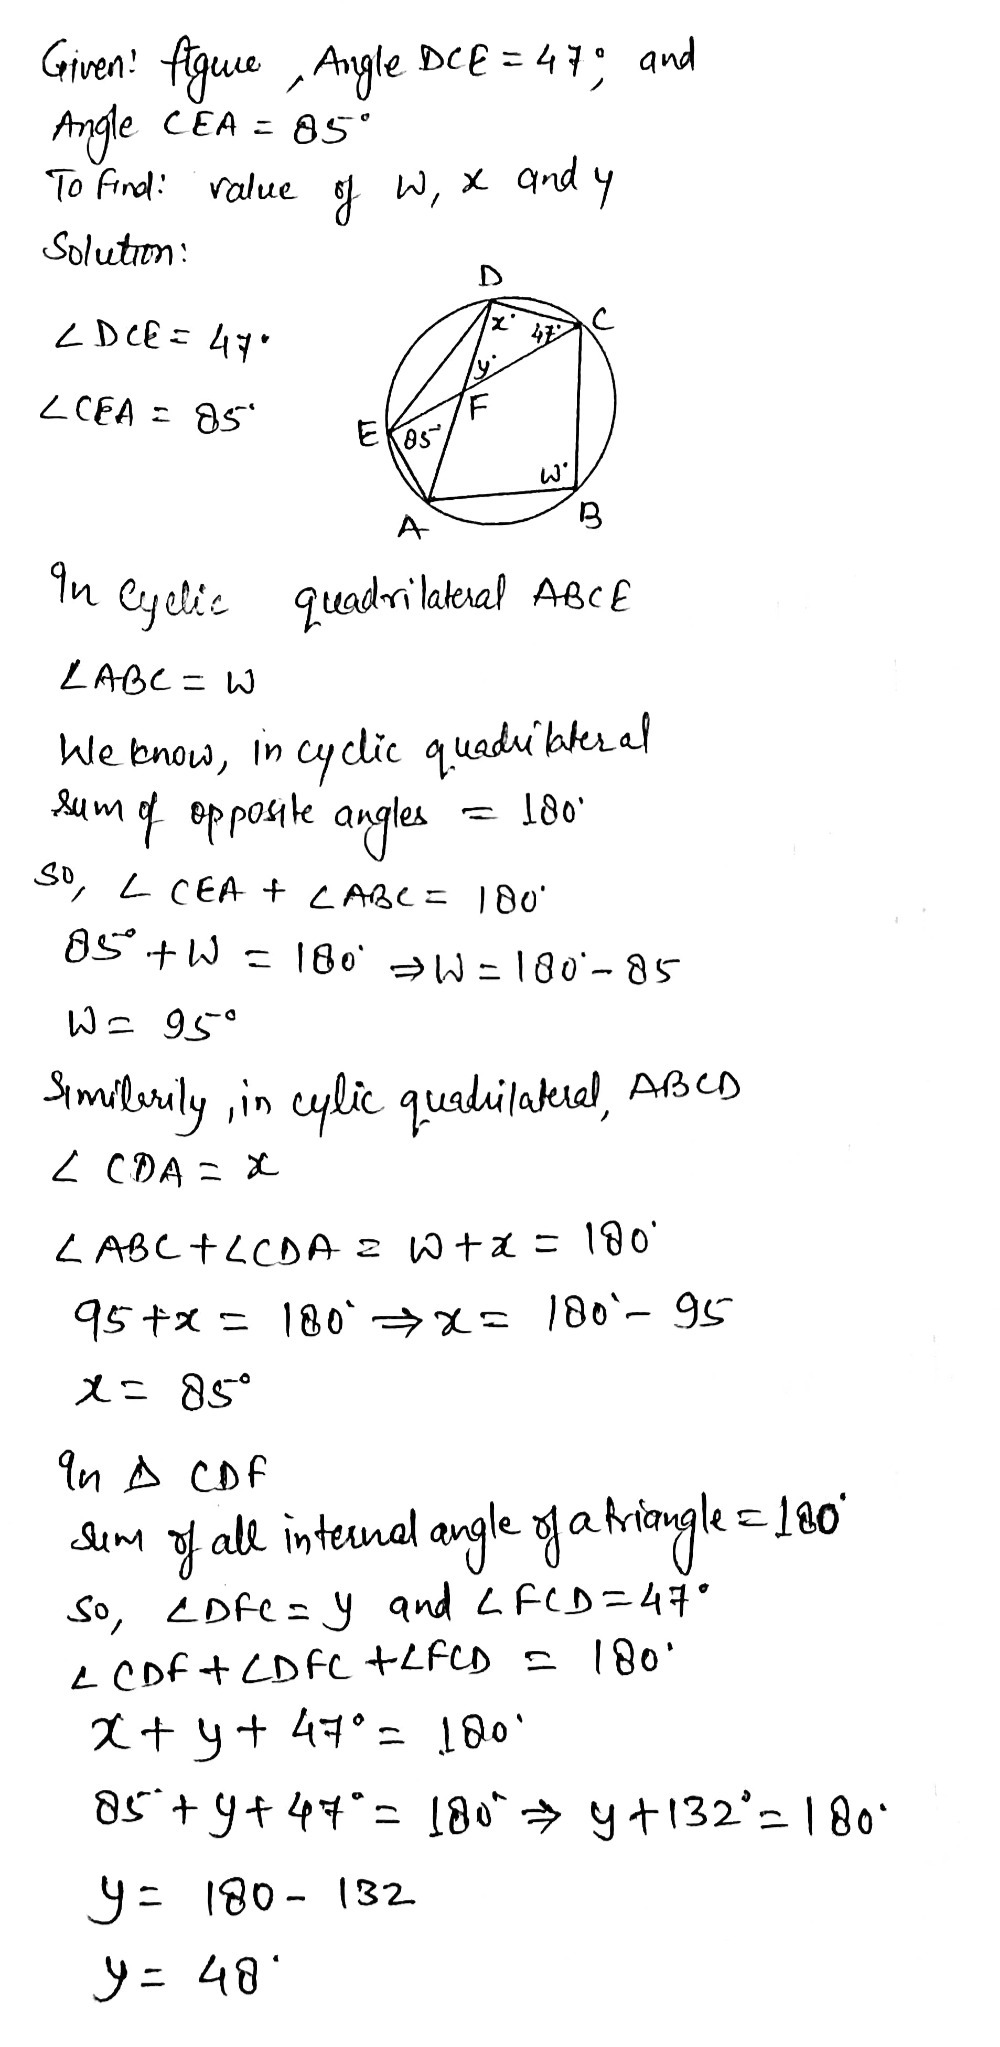 Given! figure, Angle DCE = 47°, and
Angle CEA = 85°
To find: value of W, x and y
Solution:
D
∠DCE = 47°
x° 47° C
y°
∠CEA = 85°
F
E 85°
W°
A B
In Cyclic quadrilateral ABCE
∠ABC = W
We know, in cyclic quadrilateral
sum of opposite angles = 180°
So, ∠CEA + ∠ABC = 180°
85° + W = 180° ⇒ W = 180° - 85
W = 95°
Similarily, in cylic quadrilateral, ABCD
∠CDA = x
∠ABC + ∠CDA = W + x = 180°
95 + x = 180° ⇒ x = 180° - 95
x = 85°
In Δ CDF
Sum of all internal angle of a triangle = 180°
So, ∠DFC = y and ∠FCD = 47°
∠CDF + ∠DFC + ∠FCD = 180°
x + y + 47° = 180°
85° + y + 47° = 180° ⇒ y + 132° = 180°
y = 180 - 132
y = 48°